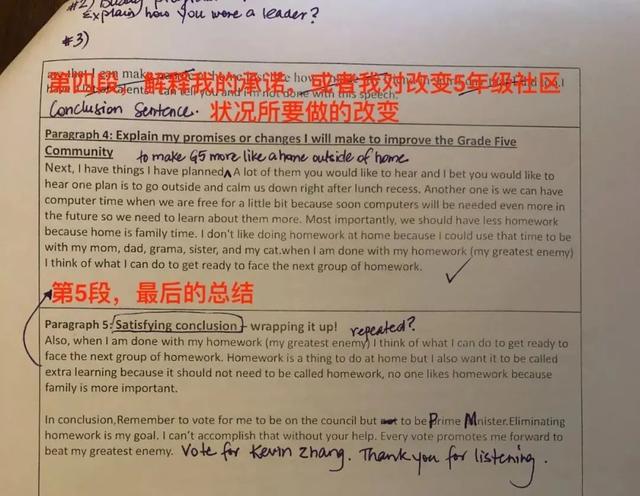 #2) Buddy program
Explain how you were a leader?
#3)
第四段，解释我的承诺，或者我对改变5年级社区
状况所要做的改变
Conclusion Sentence.
Paragraph 4: Explain my promises or changes I will make to improve the Grade Five
Community to make G5 more like a home outside of home
Next, I have things I have planned. A lot of them you would like to hear and I bet you would like to
hear one plan is to go outside and calm us down right after lunch recess. Another one is we can have
computer time when we are free for a little bit because soon computers will be needed even more in
the future so we need to learn about them more. Most importantly, we should have less homework
because home is family time. I don't like doing homework at home because I could use that time to be
with my mom, dad, grama, sister, and my cat.when I am done with my homework (my greatest enemy)
I think of what I can do to get ready to face the next group of homework.
第5段，最后的总结
Paragraph 5: Satisfying conclusion - wrapping it up! repeated?
Also, when I am done with my homework (my greatest enemy) I think of what I can do to get ready to
face the next group of homework. Homework is a thing to do at home but I also want it to be called
extra learning because it should not need to be called homework, no one likes homework because
family is more important.
In conclusion,Remember to vote for me to be on the council but not to be Prime Mnister.Eliminating
homework is my goal. I can't accomplish that without your help. Every vote promotes me forward to
beat my greatest enemy. Vote for Kevin Zhang. Thank you for listening.